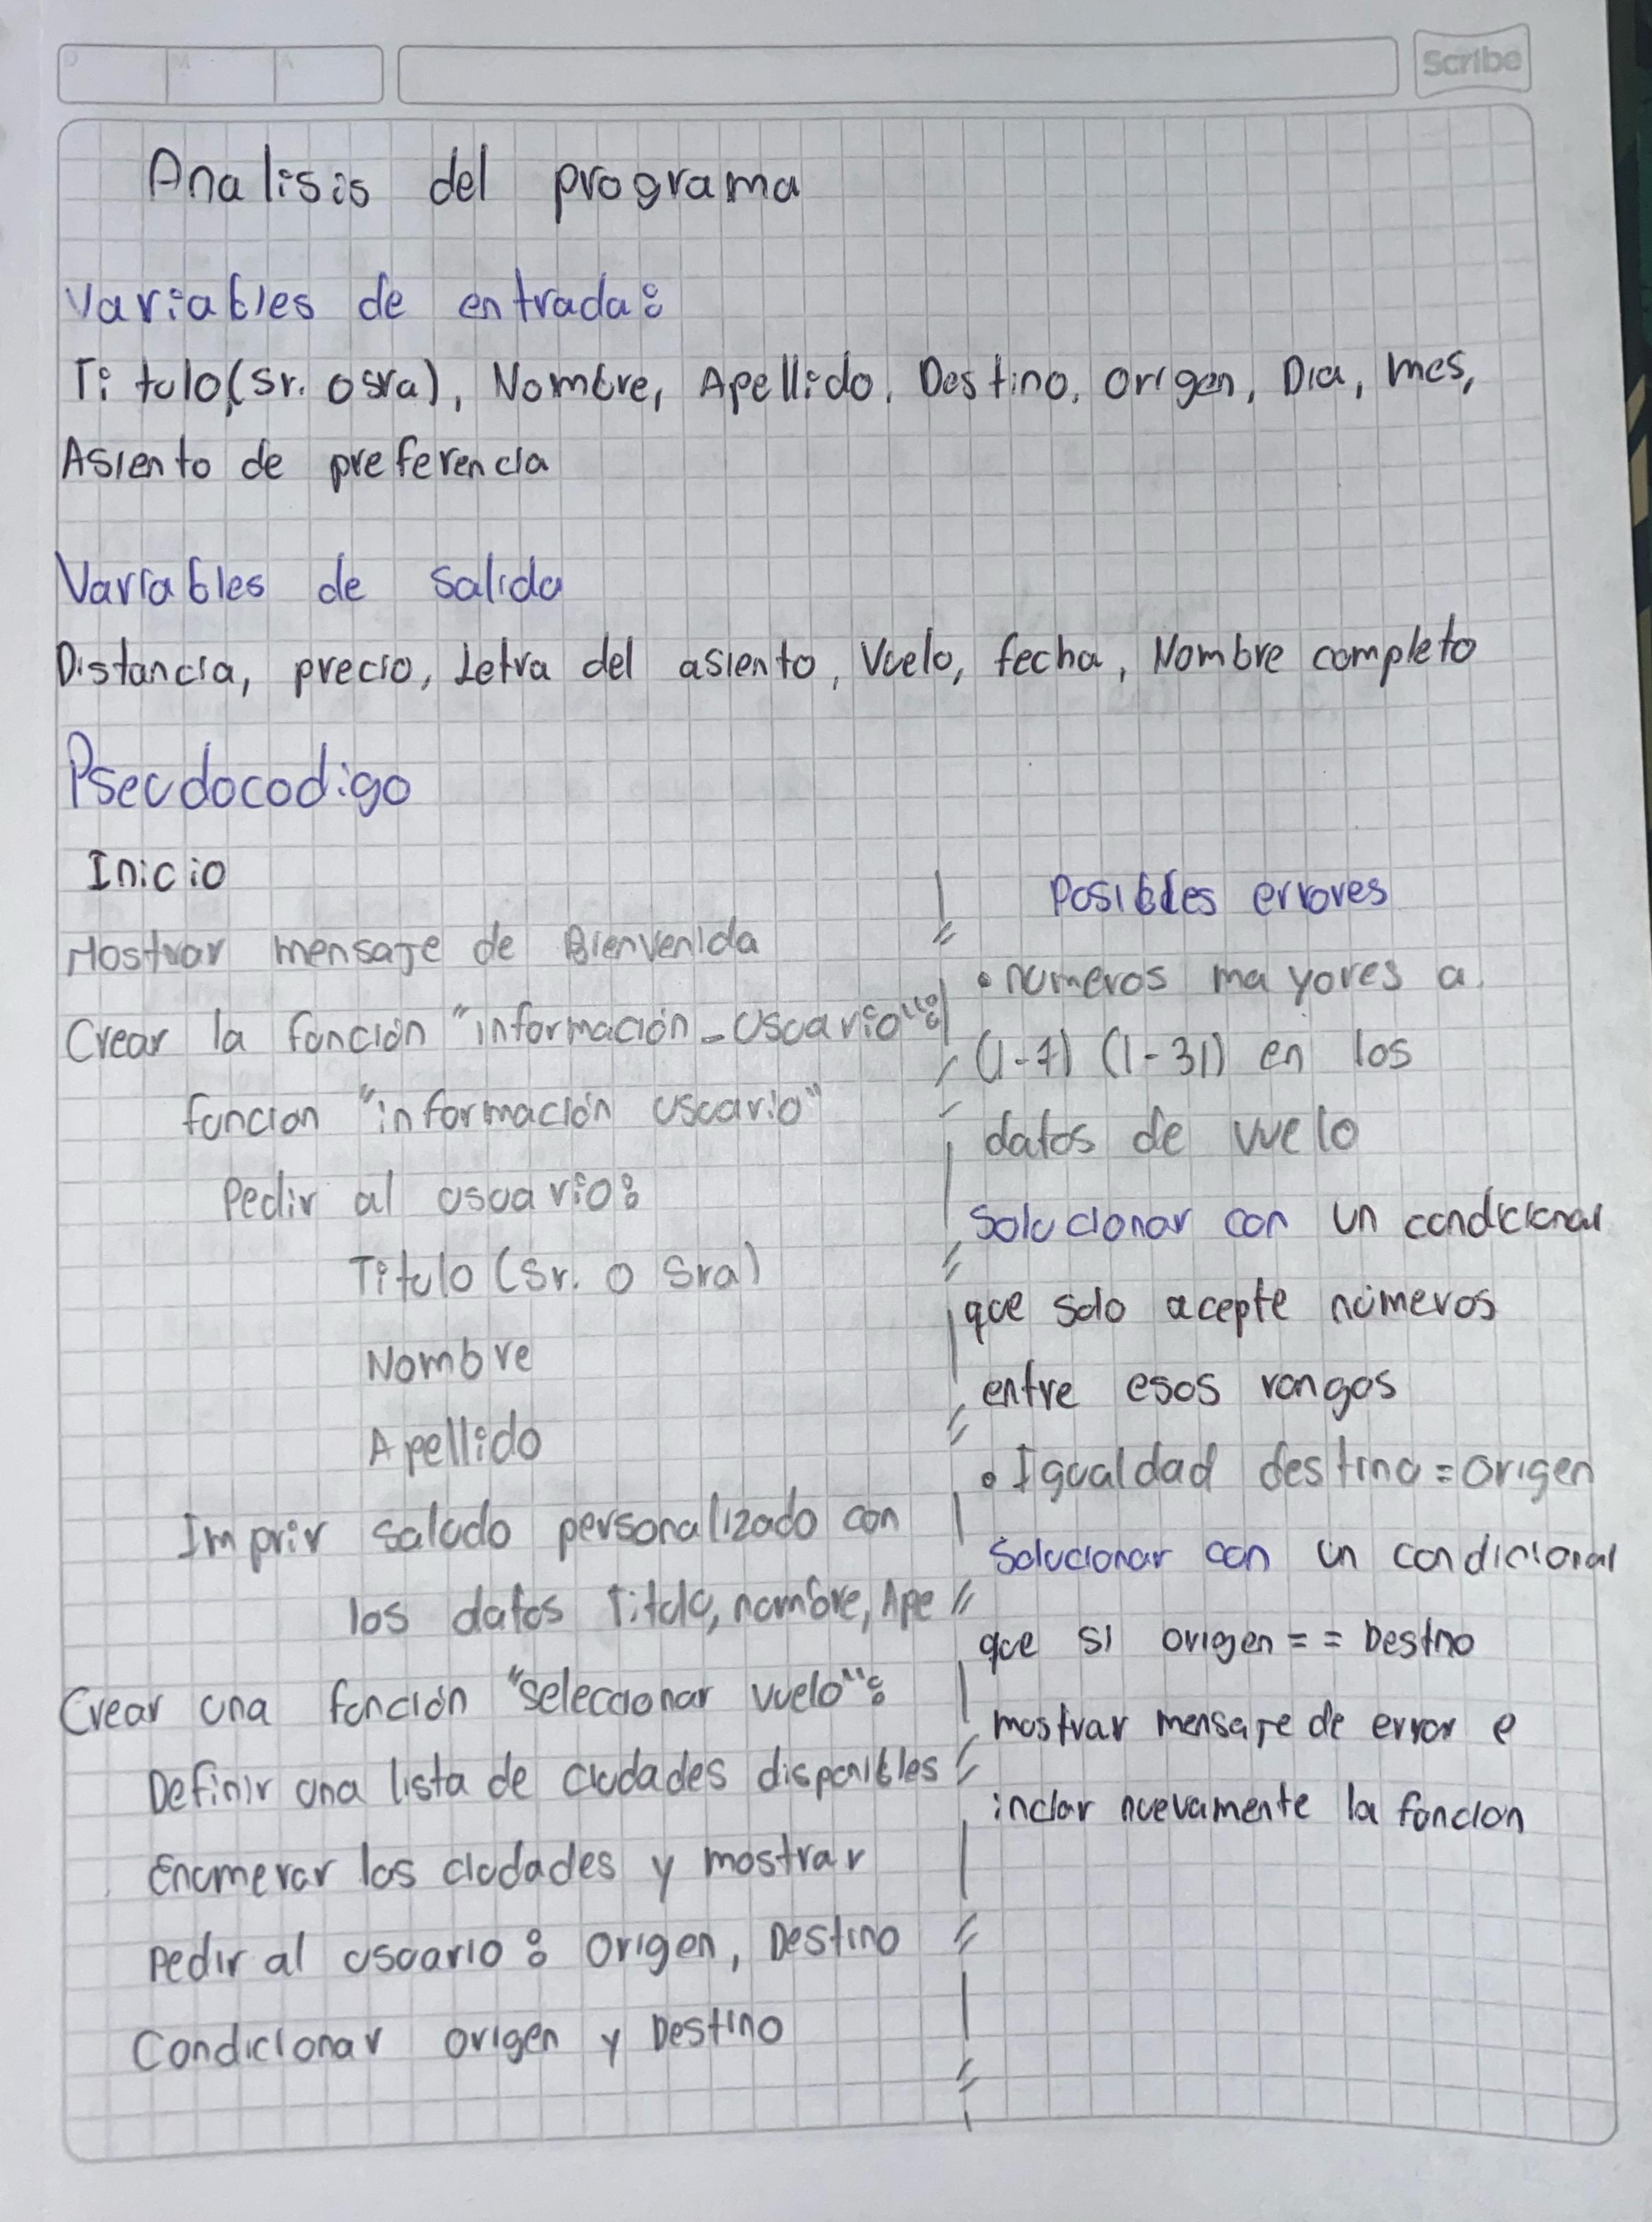 D M A
Scribe
Analisis del programa
Variables de entrada:
Titulo,(Sr. o sra), Nombre, Apellido, Destino, origen, Dia, mes,
Asiento de preferencia
Variables de salida
Distancia, precio, Letra del asiento, Vuelo, fecha, Nombre completo
Pseudocodigo
Inicio
Mostrar mensaje de Bienvenida
Crear la función "información_Usuario":
funcion "información usuario"
Pedir al usuario:
Titulo (Sr. o Sra)
Nombre
Apellido
Imprir saludo personalizado con
los datos Titulo, nombre, Ape
Crear una función "seleccionar vuelo":
Definir una lista de ciudades disponibles
Enumerar las ciudades y mostrar
Pedir al usuario: Origen, Destino
Condicionar origen y Destino
Posibles errores
• numeros mayores a
(1-7) (1-31) en los
datos de vuelo
Solucionar con un condicional
que solo acepte números
entre esos rangos
• Igualdad destino = origen
Solucionar con un condicional
que si origen == Destno
mostrar mensaje de error e
iniciar nuevamente la funcion